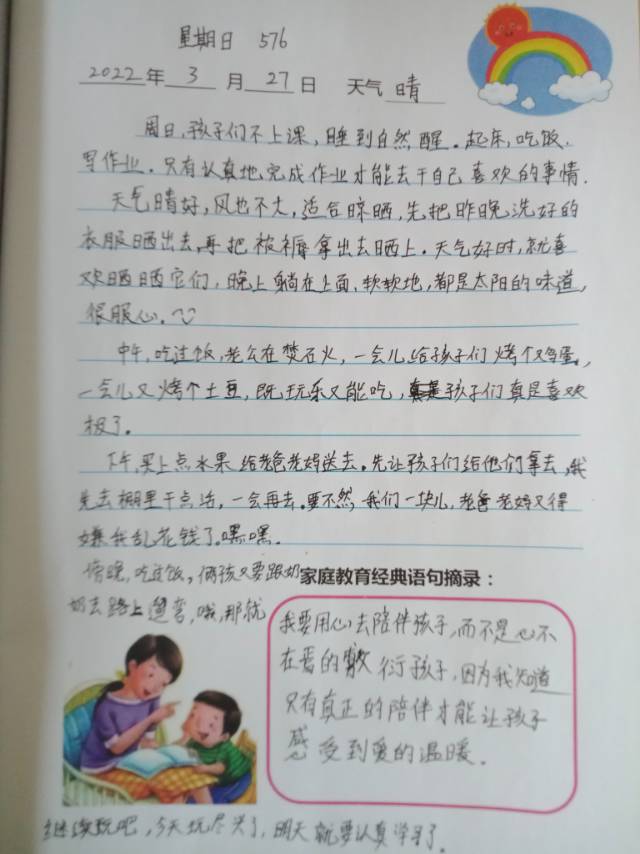 星期日 576
2022年 3 月 27 日 天气 晴
周日,孩子们不上课,睡到自然醒.起床,吃饭.
写作业.只有认真地完成作业才能去干自己喜欢的事情.
天气晴好,风也不大,适合晾晒,先把昨晚洗好的
衣服晒出去,再把被褥拿出去晒上.天气好时,就喜
欢晒晒它们,晚上躺在上面,软软地,都是太阳的味道,
很服心.
中午,吃过饭,老公在焚石火,一会儿给孩子们烤个鸡蛋,
一会儿又烤个土豆,既玩乐又能吃,孩子们真是喜欢
极了.
下午,买上点水果给老爸老妈送去.先让孩子们给他们拿去,我
先去棚里干点活,一会再去.要不然,我们一块儿,老爸老妈又得
嫌我乱花钱了.嘿嘿.
傍晚,吃过饭,俩孩又要跟奶
奶去路上遛弯,哦,那就
家庭教育经典语句摘录:
我要用心去陪伴孩子,而不是心不
在焉的敷衍孩子,因为我知道
只有真正的陪伴才能让孩子
感受到爱的温暖.
继续玩吧,今天玩尽兴了,明天就要认真学习了.